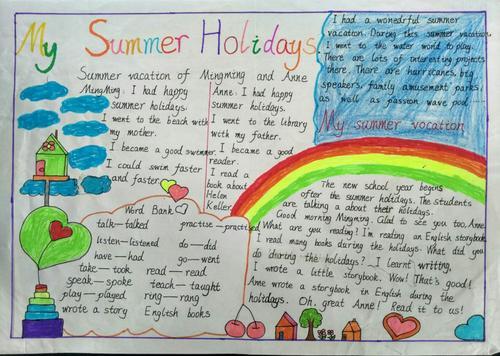 My Summer Holidays
Summer vacation of Mingming and Anne
MingMing: I had happy
summer holidays.
I went to the beach with
my mother.
I became a good swimmer.
I could swim faster
and faster.
Anne: I had happy
summer holidays.
I went to the library
with my father.
I became a good
reader.
I read a
book about
Helen
Keller.
I had a wonedrful summer
vacation. Daring this summer vacation,
I went to the water world to play.
There are lots of interesting projects
there. There are hurricanes, big
speakers, family amusement parks,
as well as passion wave pool
My summer vocation
Word Bank
talk—talked practise—practised
listen—listened do—did
have—had go—went
take—took read—read
speak—spoke teach—taught
play—played ring—rang
wrote a story English books
The new school year begins
after the summer holidays. The students
are talking a about their holidays.
Good morning Mingming. Glad to see you too, Anne.
What are you reading? I'm reading an English storybook.
I read many books during the holidays. What did you
do during the holidays? I learnt writing,
I wrote a little storybook. Wow! That's good!
Anne wrote a storybook in English during the
holidays. Oh, great Anne! Read it to us!